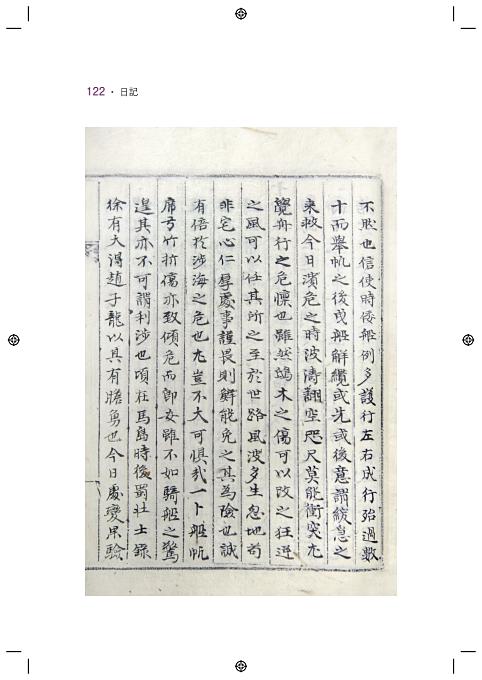 122 · 日記
不敗也信使時倭船例多護行左右成行殆過數
十而擧帆之後戎船解纜或先或後意謂緩急之
來救今日濱危之時波濤翻空咫尺莫能衝突尤
覺舟行之危懍也雖然端木之傷可以改之狂迸
之風可以任其所之至於世路風波多生忽地苟
非宅心仁厚處事謹畏則鮮能免之其為險也誠
有倍於涉海之危也尤豈不大可懼哉一卜船帆
席弓竹折傷亦致傾危而卽安雖不如騎船之驚
遑其亦不可謂利涉也頃在馬島時後蜀壯士錄
徐有大得趙子龍以其有膽勇也今日處變果驗